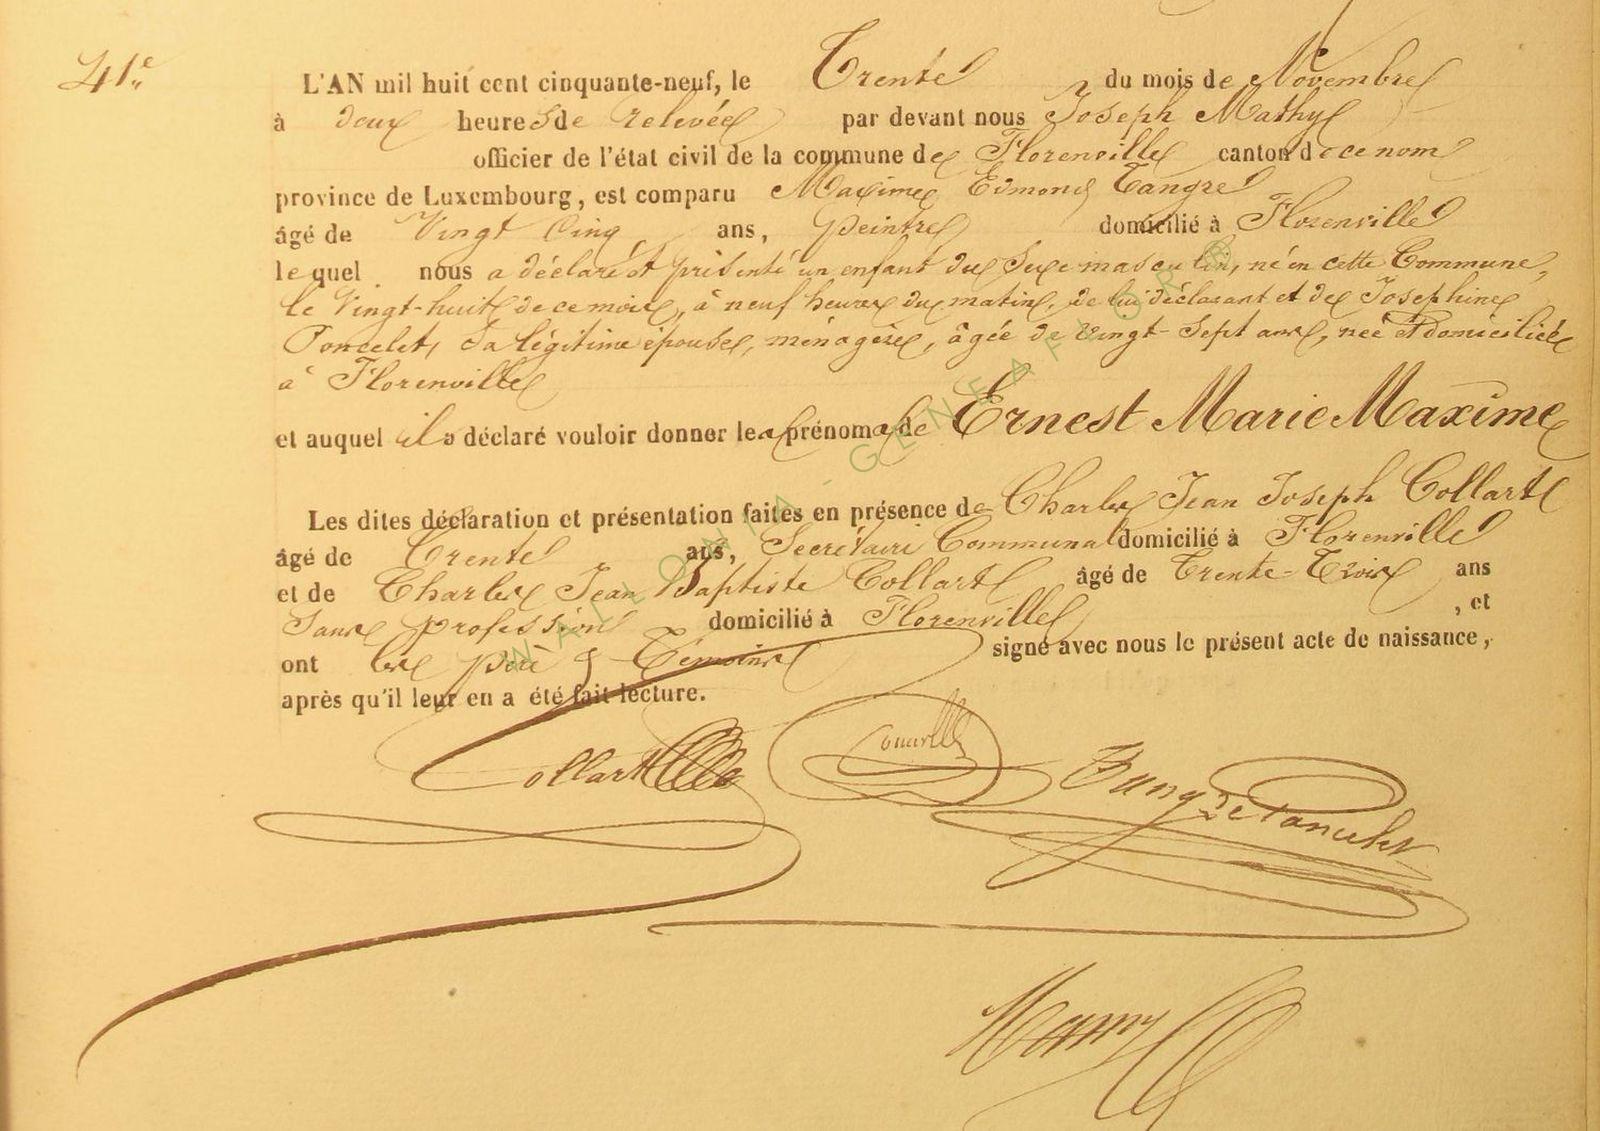 41e
L'AN mil huit cent cinquante-neuf, le Trente du mois de Novembre
à deux heures de relevée par devant nous Joseph Mathy
officier de l'état civil de la commune de Florenville canton de ce nom
province de Luxembourg, est comparu Maxime Edmond Tangre
âgé de Vingt Cinq ans, peintre domicilié à Florenville
lequel nous a déclaré et présenté un enfant du Sexe masculin, né en cette Commune,
le Vingt-huit de ce mois, à neuf heures du matin, de lui déclarant et de Josephine
Poncelet, sa légitime épouse, ménagère, âgée de vingt-sept ans, née et domiciliée
à Florenville
et auquel il a déclaré vouloir donner les prénoms de Ernest Marie Maxime
Les dites déclaration et présentation faites en présence de Charles Jean Joseph Collart
âgé de Trente ans, Secrétaire Communal domicilié à Florenville
et de Charles Jean Baptiste Collart âgé de Trente-Trois ans
Sans profession domicilié à Florenville , et
ont les père & Témoins signé avec nous le présent acte de naissance,
après qu'il leur en a été fait lecture.
Collart
WALLONIA - GENEAFLORE